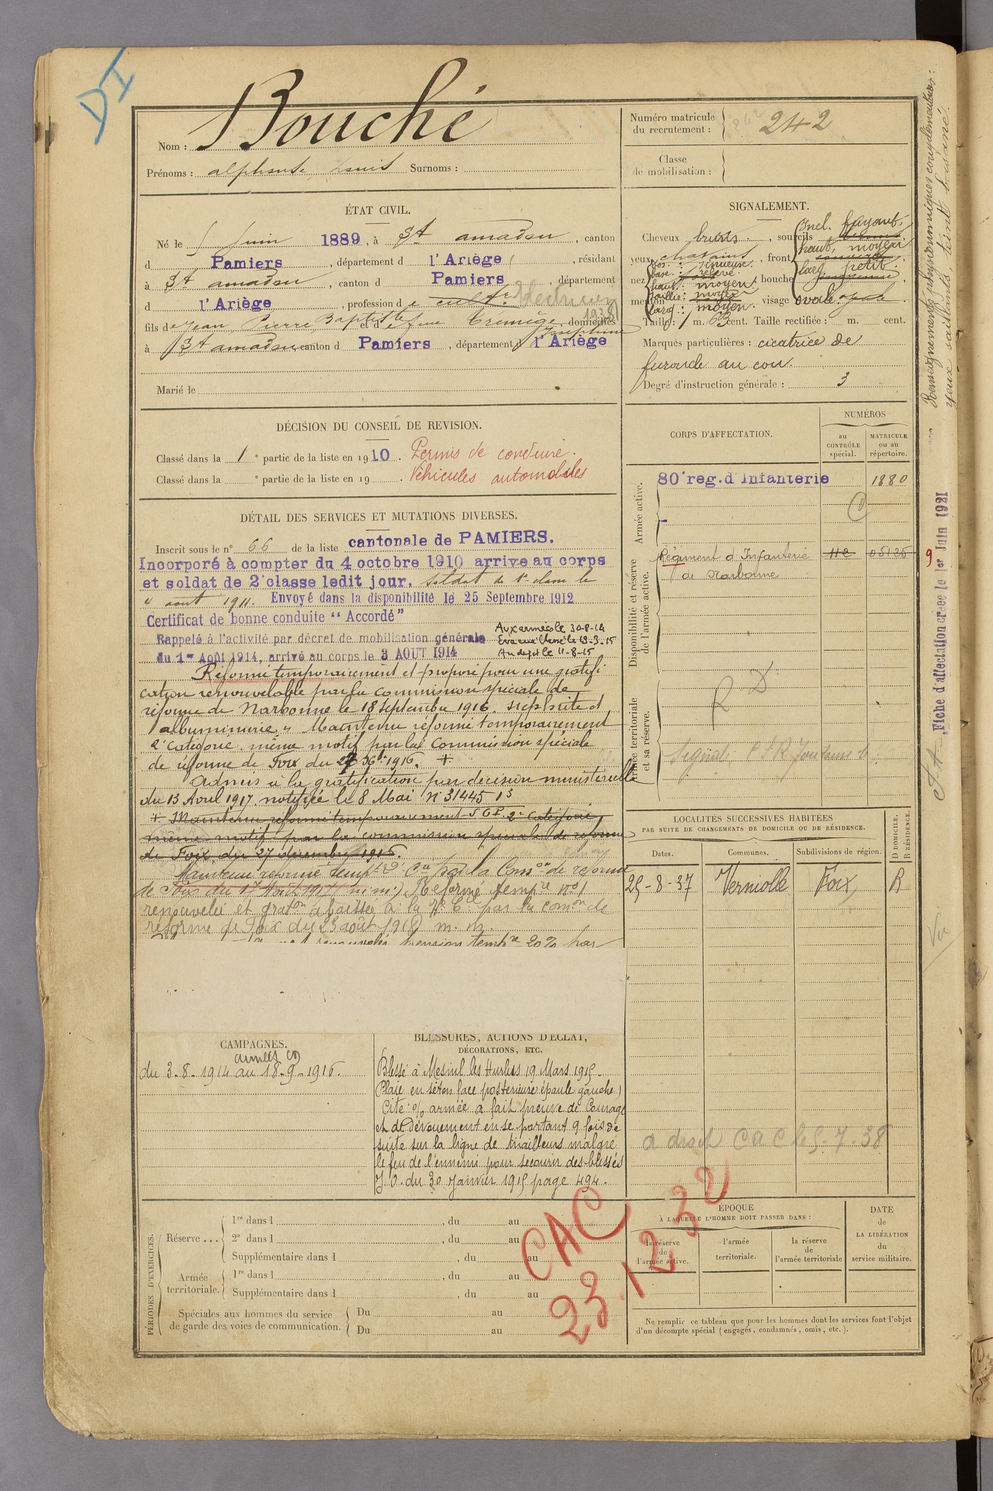 DI
Nom : Bouché
Prénoms : alphonse Louis Surnoms :
Numéro matricule du recrutement : 242
Classe de mobilisation :
ÉTAT CIVIL.
Né le 5 Juin 1889, à St amadou, canton
d Pamiers, département d l'Ariège, résidant
à St amadou, canton d Pamiers, département
d l'Ariège, profession de cultr
1938
fils de Jean Pierre Baptiste et de feue Joséphine, domiciliés
à St amadou canton d Pamiers, département d l'Ariège
Marié le
SIGNALEMENT.
Cheveux bruns, sourcils
yeux chatains, front
nez, bouche
menton, visage ovale
Taille : 1 m. 63 cent. Taille rectifiée : m. cent.
Marques particulières : cicatrice de
furoncle au cou.
Degré d'instruction générale : 3
Renseignements physionomiques complémentaires :
yeux saillants,
DÉCISION DU CONSEIL DE REVISION.
Classé dans la 1e partie de la liste en 1910. Permis de conduire.
Classé dans la e partie de la liste en 19 . Véhicules automobiles
CORPS D'AFFECTATION.
NUMÉROS
au CONTRÔLE spécial.
MATRICULE ou au répertoire.
Armée active.
80e reg. d'Infanterie 1880
Disponibilité et réserve de l'armée active.
Régiment d'Infanterie 112 05125
de Narbonne
Armée territoriale et sa réserve.
R D
9
Fiche d'affectation créée le 1er Juin 1921
DÉTAIL DES SERVICES ET MUTATIONS DIVERSES.
Inscrit sous le n° 66 de la liste cantonale de PAMIERS.
Incorporé à compter du 4 octobre 1910 arrivé au corps
et soldat de 2e classe ledit jour. Soldat de 1e classe le
août 1911. Envoyé dans la disponibilité le 25 Septembre 1912
Certificat de bonne conduite "Accordé"
Rappelé à l'activité par décret de mobilisation générale
du 1er Août 1914, arrivé au corps le 3 AOUT 1914
Aux armées le 30-8-14
Evacué blessé le 19-3-15
Au dépôt le 11-8-15
Réformé temporairement et proposé pour une gratifi
cation renouvelable par la commission spéciale de
réforme de Narbonne le 18 septembre 1916
albuminurie. Maintenu réformé temporairement
2e Catégorie même motif par la Commission spéciale
de réforme de Foix du 27 Xbre 1916. +
Admis à la gratification par décision ministérielle
du 13 Avril 1917 notifiée le 8 Mai N° 31445 13
+ Maintenu réformé temporairement 2e Catégorie,
même motif par la commission spéciale de réforme
de Foix du 27 décembre 1916.
Maintenu réformé tempre 2e Cie par la Comson de réforme
de Foix du Août 1917 m. m. Réformé tempre N°1
renouvelée et graton abaissée à la 7e Cie par la comon de
réforme de Foix du 23 août 1918 m. m.
pension tempre 20% par
LOCALITÉS SUCCESSIVES HABITÉES
PAR SUITE DE CHANGEMENTS DE DOMICILE OU DE RÉSIDENCE.
Dates. Communes. Subdivisions de région. D DOMICILE. R RÉSIDENCE.
25-8-37 Verniolle Foix R
Vu
CAMPAGNES.
du 3-8-1914 au 18-9-1916.
BLESSURES, ACTIONS D'ÉCLAT,
DÉCORATIONS, ETC.
Blessé à Mesnil les Hurlus 19 Mars 1915.
Plaie en séton face postérieure épaule gauche)
Cité o/ armée a fait preuve de Courage
et de dévouement en se portant 9 fois de
suite sur la ligne de tirailleurs malgré
le feu de l'ennemi pour secourir des blessés
J.O. du 30 Janvier 1915 page 494.
CAC 7.38
CAC
23.12.32
PÉRIODES D'EXERCICES.
Réserve ...
1re dans l , du au
2e dans l , du au
Supplémentaire dans l , du au
Armée territoriale.
1re dans l , du au
Supplémentaire dans l , du au
Spéciales aux hommes du service
de garde des voies de communication.
Du au
Du au
ÉPOQUE
À LAQUELLE L'HOMME DOIT PASSER DANS :
la réserve de l'armée active.
l'armée territoriale.
la réserve de l'armée territoriale
DATE de LA LIBÉRATION du service militaire.
Ne remplir ce tableau que pour les hommes dont les services font l'objet
d'un décompte spécial (engagés, condamnés, omis, etc.).